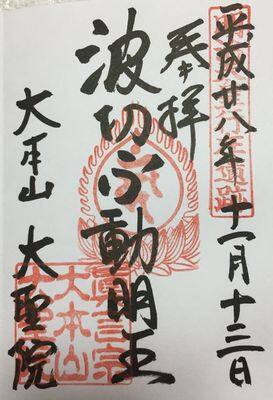 平成廿八年十一月十三日
奉拝
波切不動明王
大本山 大聖院